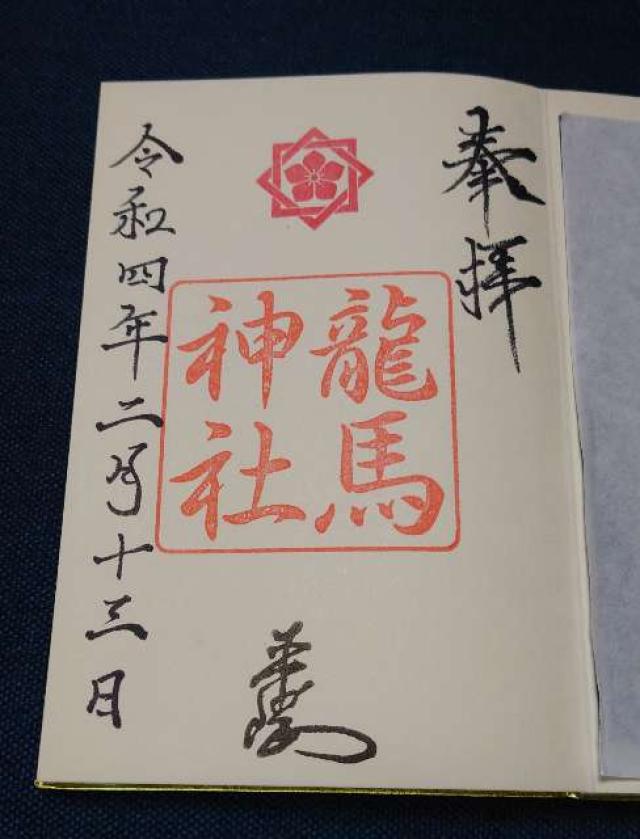 奉拝
龍馬
神社
令和四年二月十三日